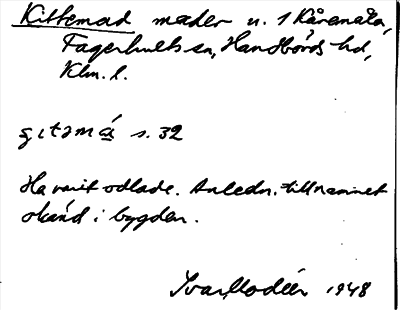 Kittemad mader u. 1 Kåremåla,
Fagerhults sn, Handbörds hd,
Klm. l.
gɩtəmá s. 32
Ha varit odlade. Anledn. till namnet
okänd i bygden.
Ivar Modéer 1948